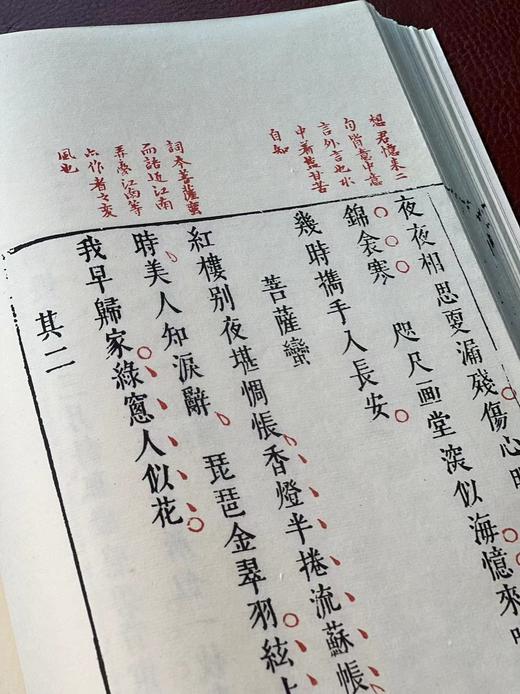 想君憶來二
句皆意中意
言外言也水
中著盐甘苦
自知
詞本菩薩蠻
而語近江南
弄夢江南等
亦作者之變
風也
夜夜相思更漏殘傷心
錦衾寒　咫尺画堂深似海憶來
幾時攜手入長安
菩薩蠻
紅樓别夜堪惆悵香燈半捲流蘇帳
時美人知淚辭　琵琶金翠羽絃上
我早歸家綠窓人似花
其二